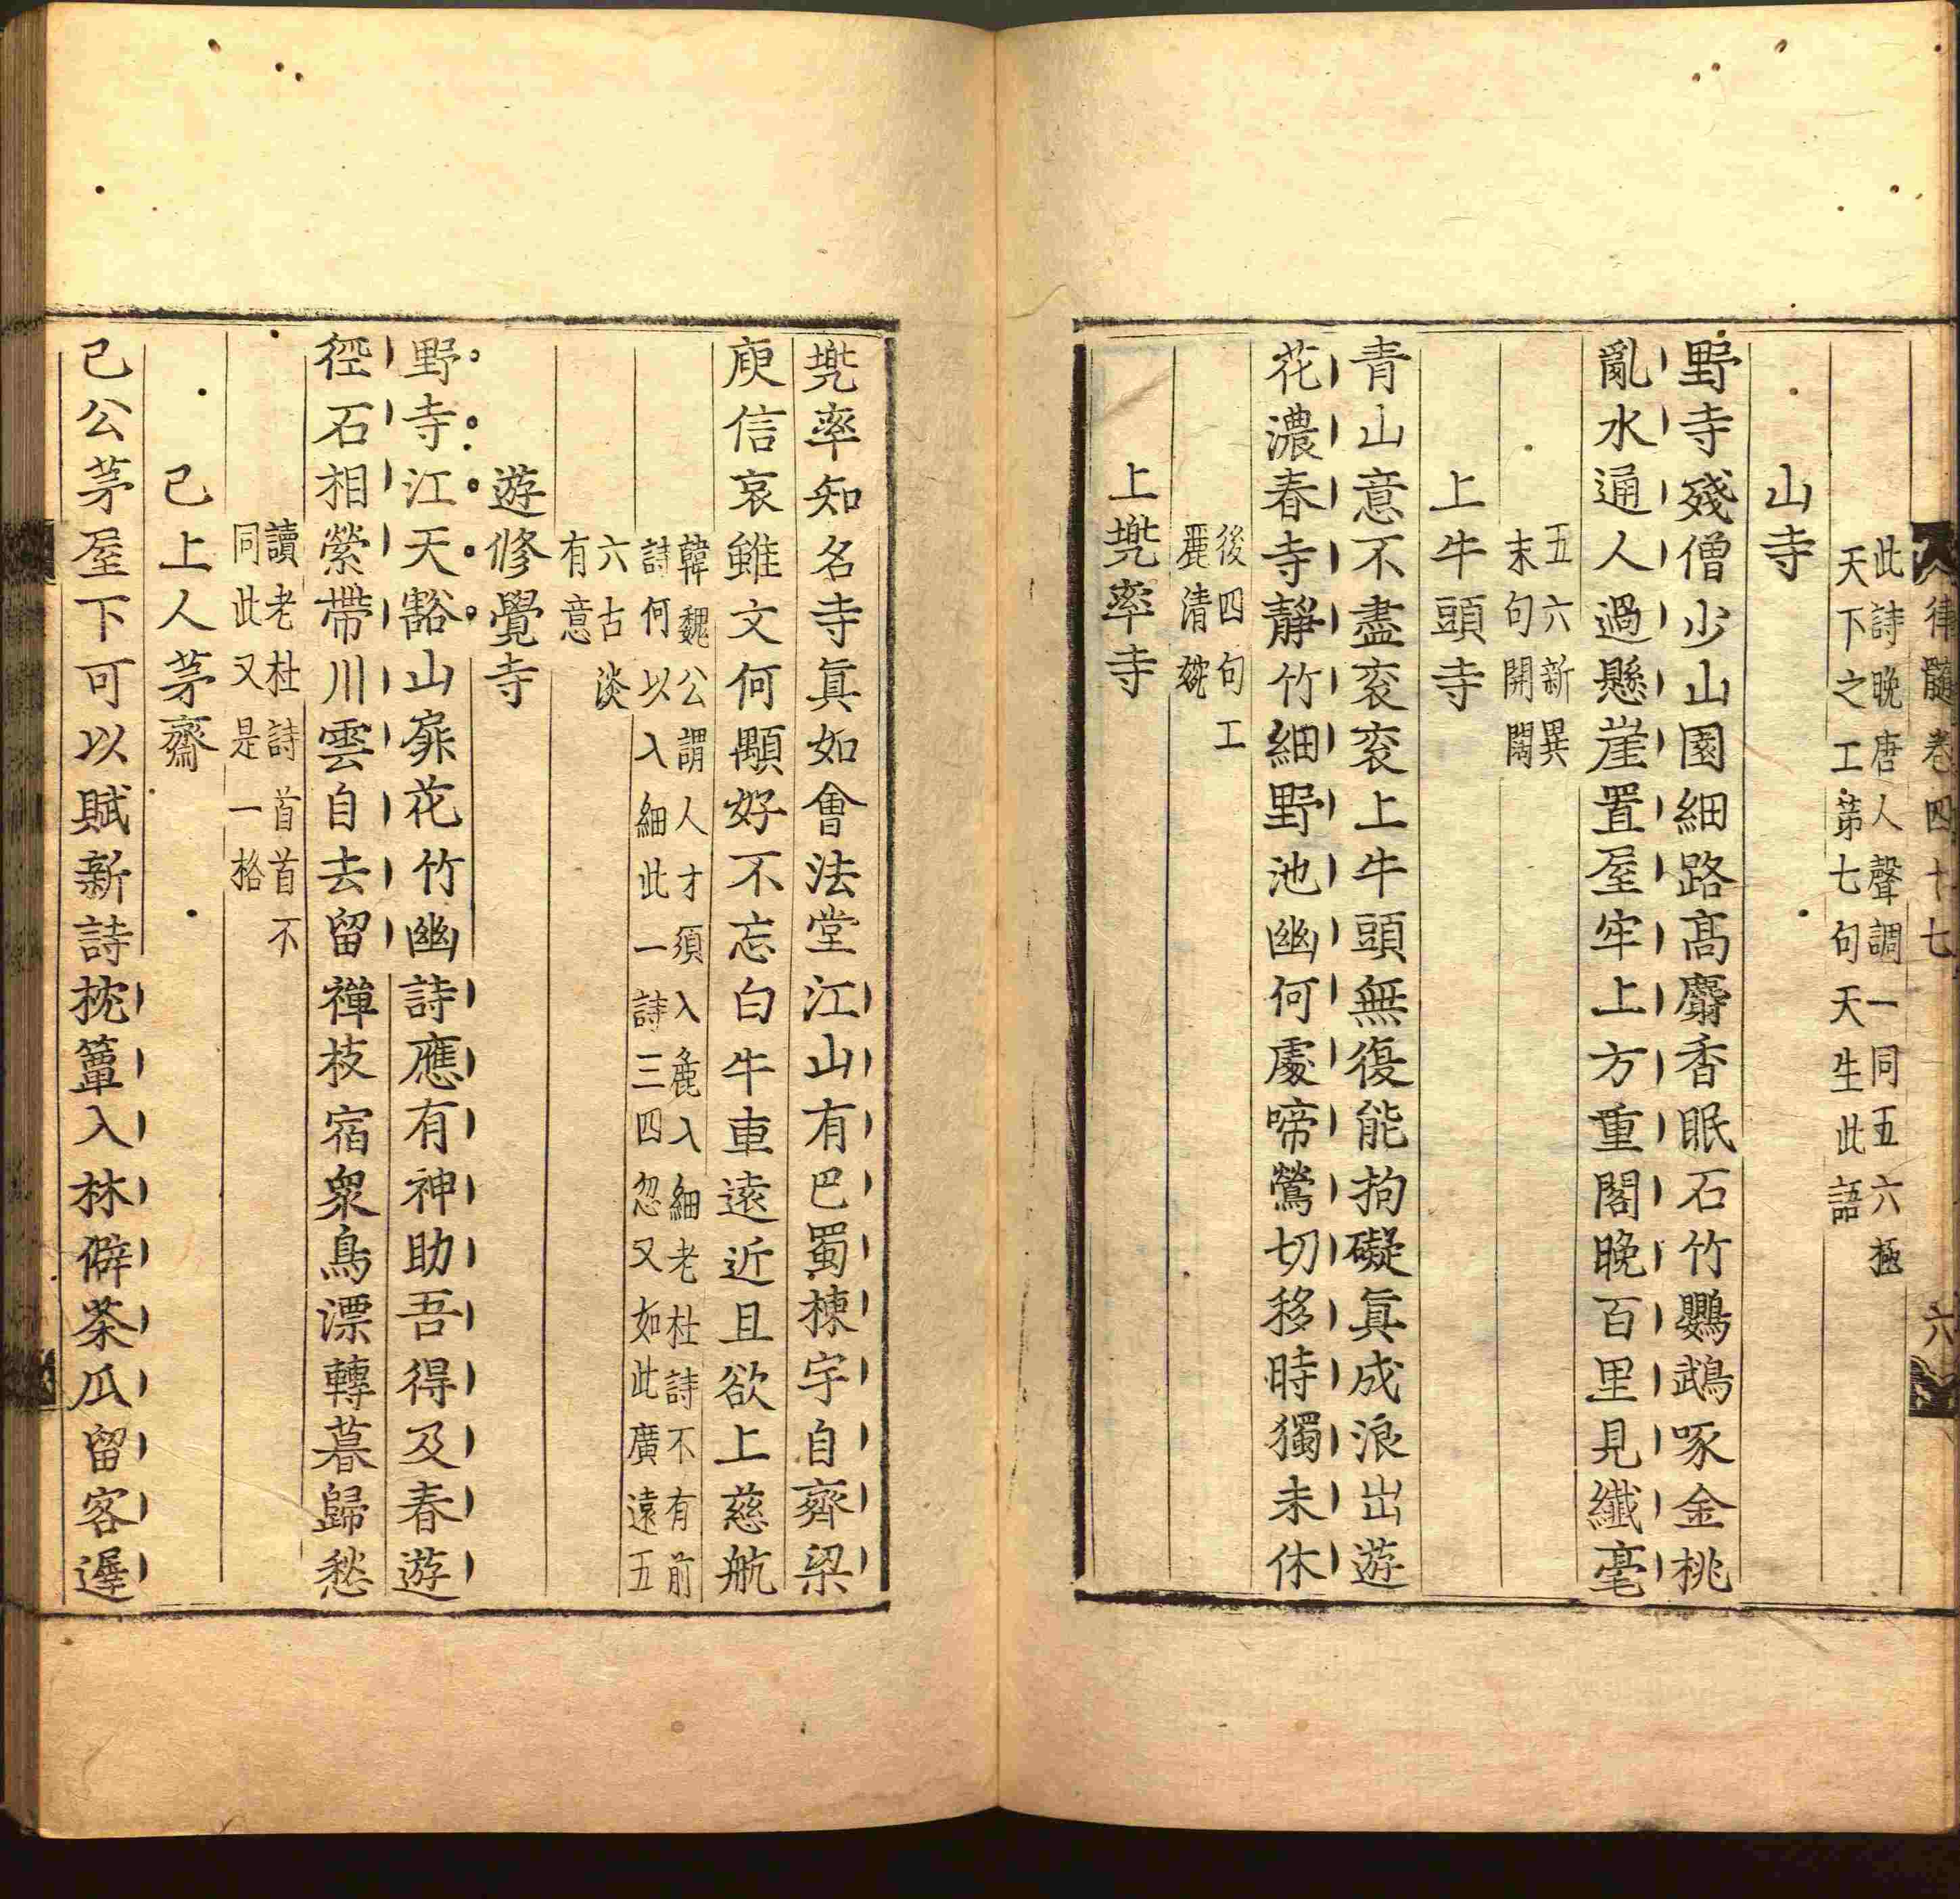 律髓卷四十七 六
此詩晚唐人聲調一同五六極
天下之工第七句天生此語
山寺
野寺殘僧少山園細路高麝香眠石竹鸚鵡啄金桃
亂水通人過懸崖置屋牢上方重閣晚百里見纖毫
五六新異
末句開闊
上牛頭寺
青山意不盡衮衮上牛頭無復能拘礙眞成浪出遊
花濃春寺靜竹細野池幽何處啼鶯切移時獨未休
後四句工
麗清婉
上兠率寺
兠率知名寺眞如會法堂江山有巴蜀棟宇自齊梁
庾信哀雖文何顒好不忘白牛車遠近且欲上慈航
韓魏公謂人才須入麁入細老杜詩不有前
詩何以入細此一詩三四忽又如此廣遠五
六古淡
有意
遊修覺寺
野寺江天豁山扉花竹幽詩應有神助吾得及春遊
徑石相縈帶川雲自去留禪枝宿衆鳥漂轉暮歸愁
讀老杜詩首首不
同此又是一格
已上人茅齋
已公茅屋下可以賦新詩枕簟入林僻茶瓜留客遲